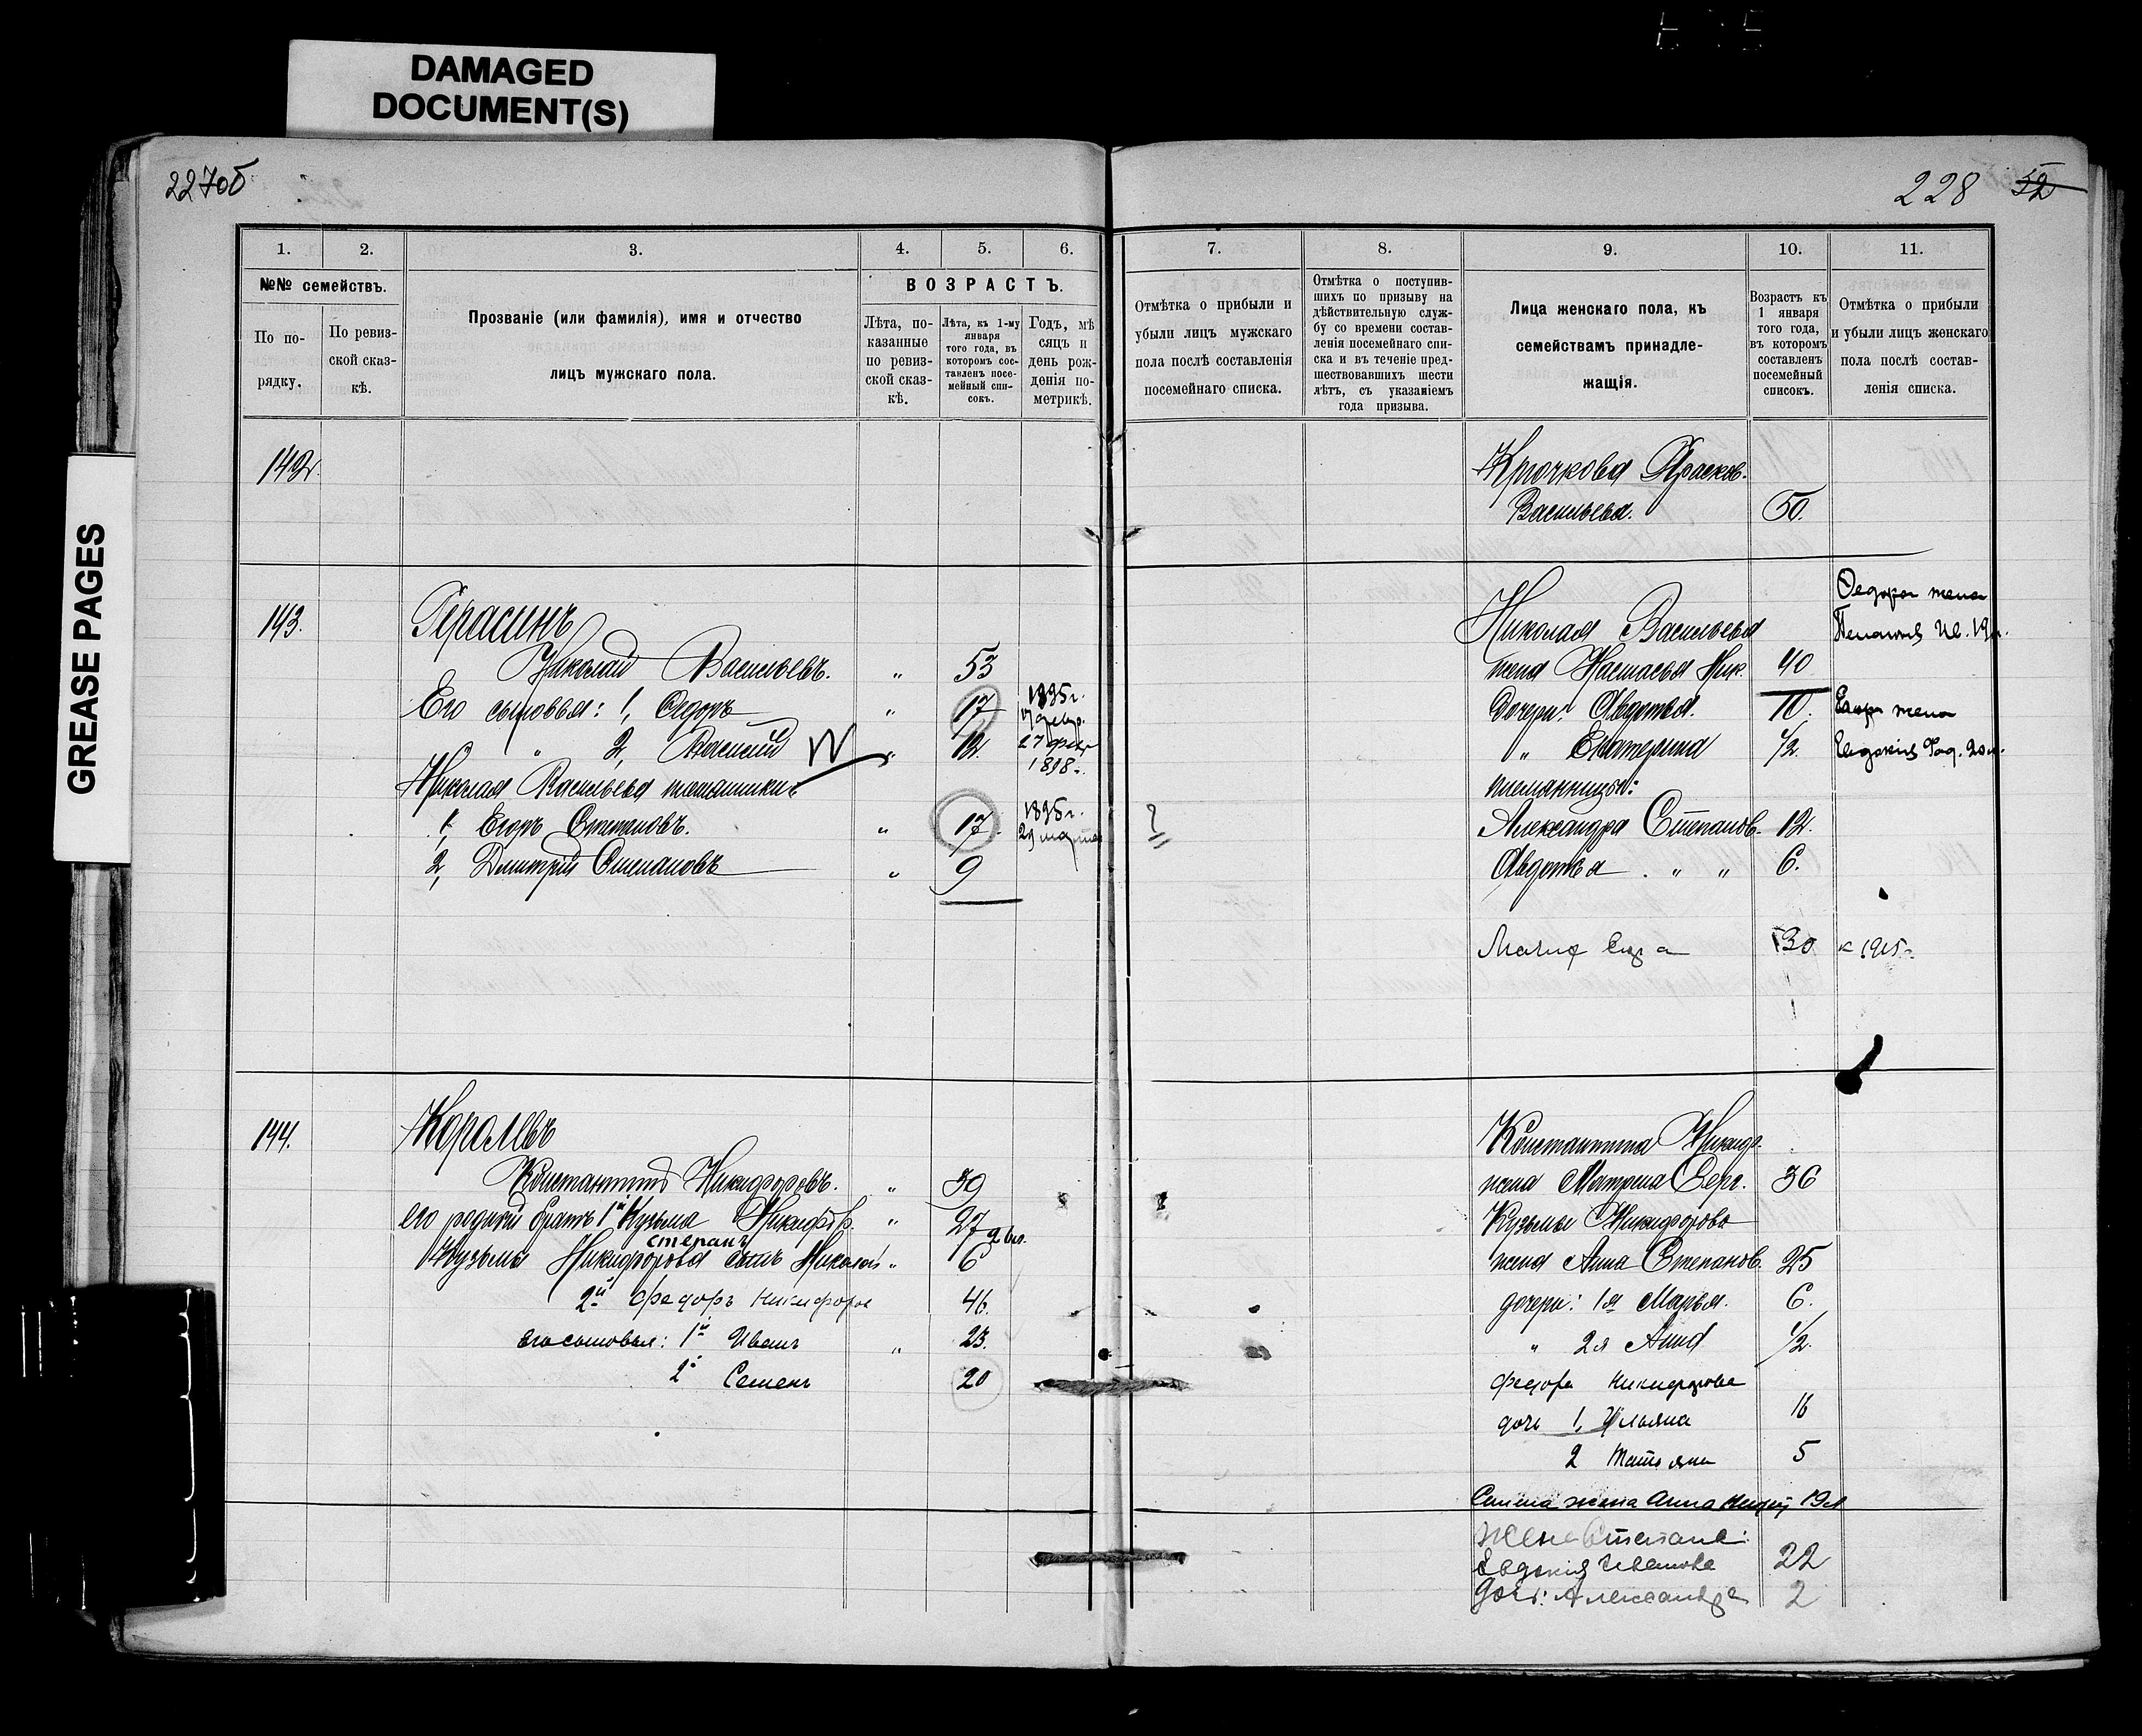 DAMAGED
DOCUMENT(S)
GREASE PAGES
227об
228 52
1. 2. 3. 4. 5. 6.
№№ семействъ.
По по-
рядку.
По ревиз-
ской сказ-
кѣ.
Прозваніе (или фамилія), имя и отчество
лицъ мужскаго пола.
ВОЗРАСТЪ.
Лѣта, по-
казанные
по ревиз-
ской сказ-
кѣ.
Лѣта, къ 1-му
января
того года, въ
котором сос-
тавленъ посе-
мейный спи-
сокъ.
Годъ, мѣ
сяцъ и
день рож-
денія по-
метрикѣ.
7. 8. 9. 10. 11.
Отмѣтка о прибыли и
убыли лицъ мужскаго
пола послѣ составленія
посемейнаго списка.
Отмѣтка о поступив-
шихъ по призыву на
дѣйствительную служ-
бу со времени состав-
ленія посемейнаго спи-
ска и въ теченіе пред-
шествовавшихъ шести
лѣтъ, съ указаніемъ
года призыва.
Лица женскаго пола, къ
семействамъ принадле-
жащія.
Возрастъ къ
1 января
того года,
въ которомъ
составленъ
посемейный
списокъ.
Отмѣтка о прибыли
и убыли лицъ женскаго
пола послѣ состав-
ленія списка.
142.
Крючкова Прасков.
Васильева. 50.
143. Герасинъ
Николай Васильевъ. " 53
Его сыновья: 1, Ѳедоръ " 17 1895г.
" 2, Василій " 12. 27 фев
1898г.
Николая Васильева племянники
1, Егоръ Степановъ. " 17. 1895г.
29 марта
2, Дмитрій Степановъ " 9
Николая Васильева
жена Настасья Ник. 40
дочери: Авдотья. 10.
" Екатерина 1/2.
племянницы:
Александра Степанов. 12.
Авдотья " " 6.
30 к 1915г.
Ѳедора жена
Пелагея Ив. 19л.
Егора жена
Евдокія Ѳад. 20л.
144. Королевъ
Константинъ Никифоровъ. " 39
его родной братъ 1й Кузьма Никифор. " 27
степанъ
Кузьмы Никифорова сынъ Николай " 6
2й Федоръ Никифоров 46.
его сыновья: 1й Иванъ " 23.
2й Семенъ 20
Константина Никифор.
жена Матрена Серг. 36
Кузьмы Никифорова
жена Анна Степанов. 25
дочери: 1я Марья. 6.
" 2я Анна 1/2.
Федора Никифорова
дочь 1, Ульяна 16
2 Татьяна 5
жена Анна 19л
Жена Степана:
Евдокія Иванова 22
дочь: Александра 2